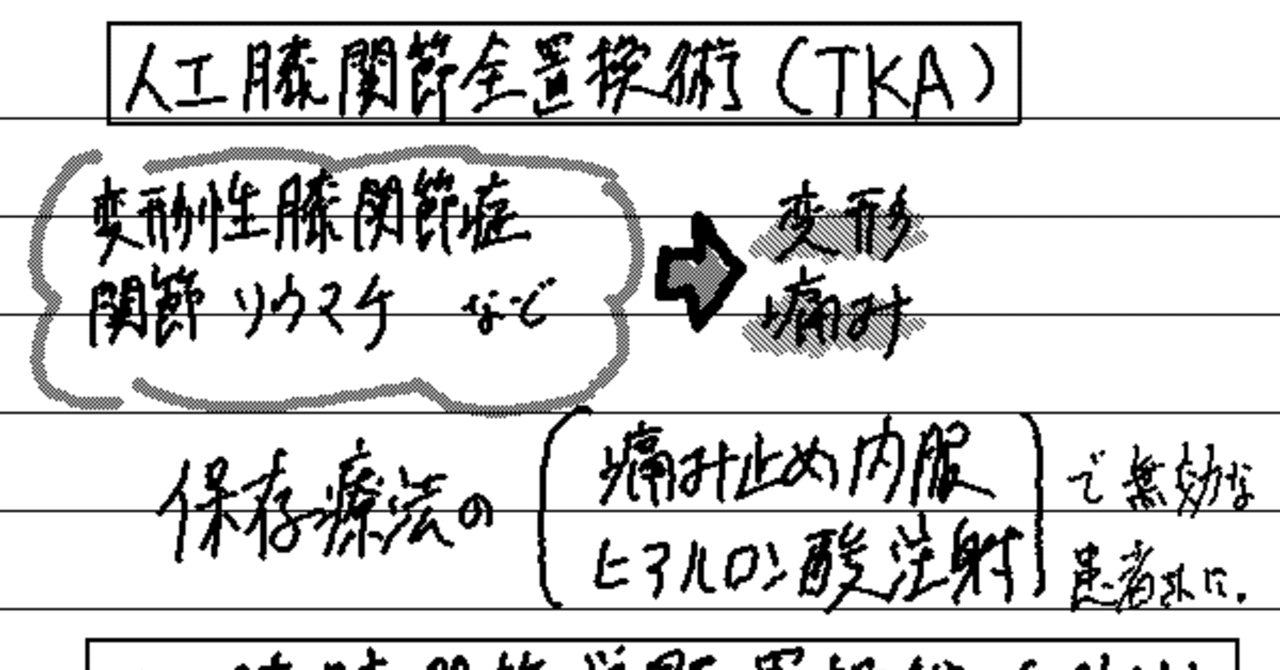 人工膝関節全置換術(TKA)
変形性膝関節症
関節リウマチ など
変形
痛み
保存療法の
痛み止め内服
ヒアルロン酸注射
で無効な
患者さんに.